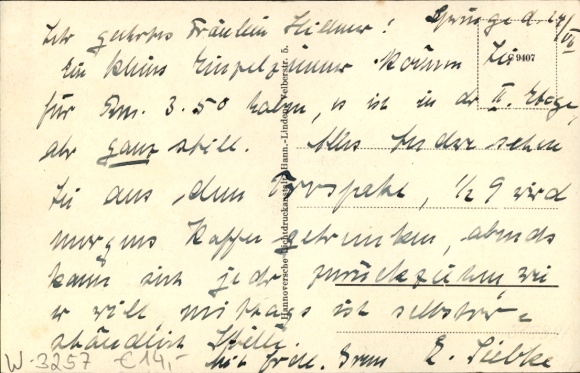 Springe d. 24/VII
Sehr geehrtes Fräulein Heidmer!
Ein kleines Einzelzimmer können Sie
für Rm. 3.50 haben, es ist in der II. Etage,
aber ganz still. Alles andere sehen
Sie aus dem Prospekt, ½ 9 wird
morgens Kaffee getrunken, abends
kann sich jeder zurückziehen wie
er will mittags ist selbstver=
ständlich Stille.
Mit frdl. Gruss E. Liebke
9407
Hannoversche Lichtdruckanstalt, Hann.-Linden, Velberstr. 5.
W-3257 €14,-